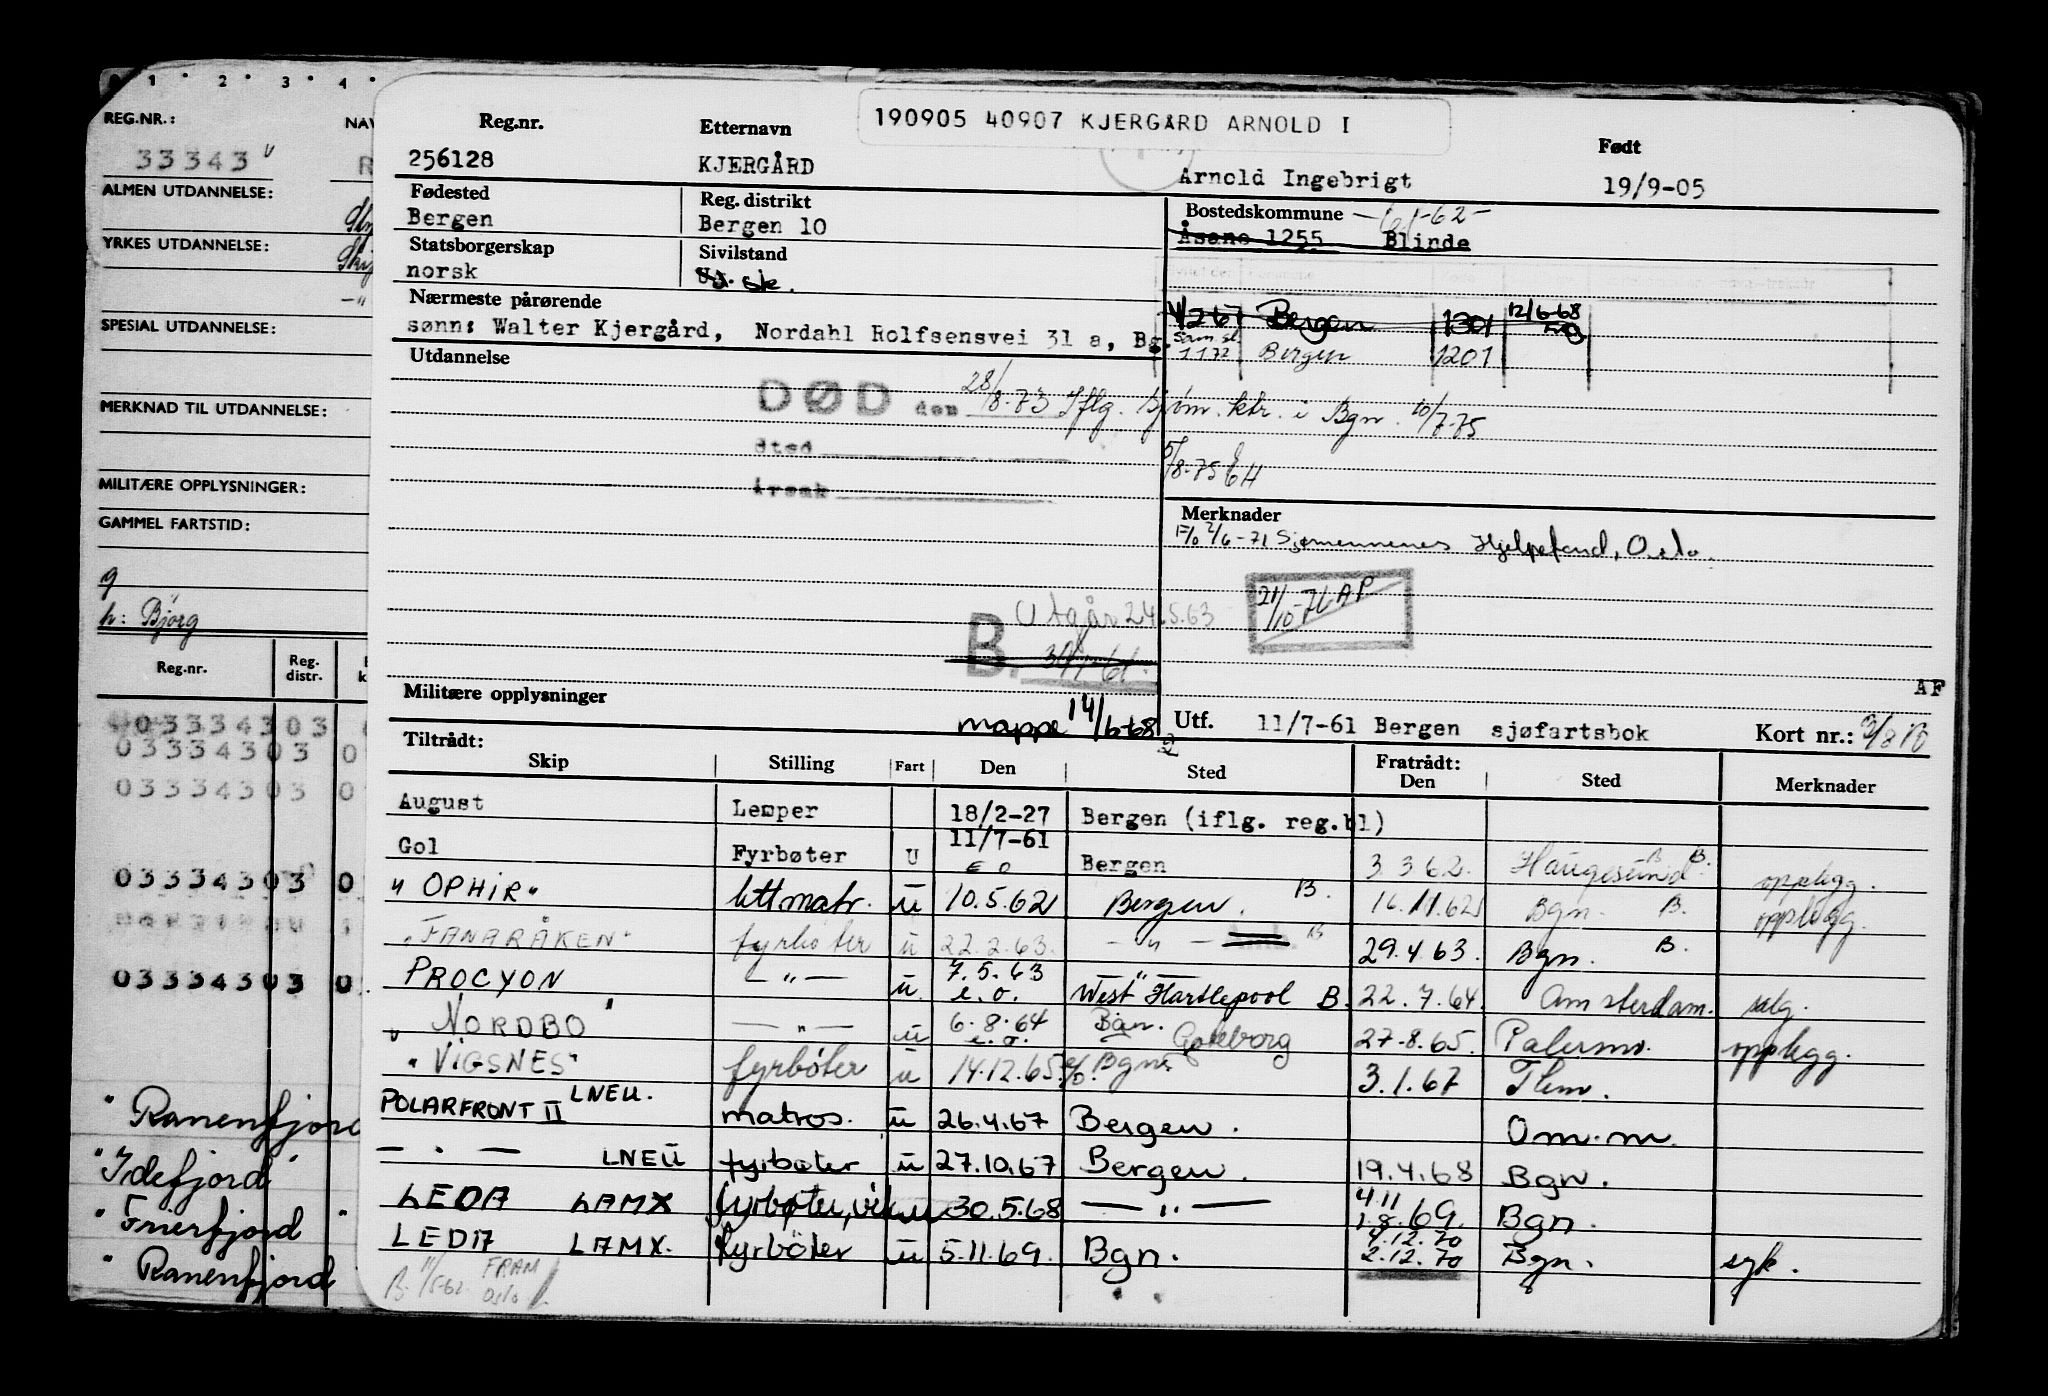 1 2 3 4
REG.NR.:
33343
ALMEN UTDANNELSE:
YRKES UTDANNELSE:
SPESIAL UTDANNELSE:
MERKNAD TIL UTDANNELSE:
MILITÆRE OPPLYSNINGER:
GAMMEL FARTSTID:
g
h: Bjørg
Reg.nr. Reg. distr.
03334303
03334303 0
03334303 0
03334303 0
03334303 0
"Ranenfjord
"Idefjord"
"Frierfjord"
"Ranenfjord
190905 40907 KJERGÅRD ARNOLD I
Reg.nr. Etternavn Født
256128 KJERGÅRD Arnold Ingebrigt 19/9-05
Fødested Reg. distrikt Bostedskommune
Bergen Bergen 10 Åsane 1255 Blinde
Statsborgerskap Sivilstand
norsk
Nærmeste pårørende
sønn: Walter Kjergård, Nordahl Rolfsensvei 31 a, Bg.
Bergen 1301 12/6-68
1.1.72 Bergen 1201
Utdannelse
DØD den 28/8-73 Iflg. Sjøm. ktr. i Bgn. 10/7-75
sted
årsak
5/8-75 EH
Merknader
F/o 2/6-71 Sjømennenes Hjelpefond, Oslo.
21/10-76 AP
Utgår 24.5.63
B.
AF
Militære opplysninger
mappe 14/6-68
Utf. 11/7-61 Bergen sjøfartsbok Kort nr.:
Tiltrådt: Fratrådt:
Skip Stilling Fart Den Sted Den Sted Merknader
August Lemper 18/2-27 Bergen (iflg. reg.bl)
Gol Fyrbøter U 11/7-61 Bergen 3.3.62. Haugesund B. opplegg.
"OPHIR" lettmatr. u 10.5.62 Bergen. B. 16.11.62 Bgn. B. opplegg.
"FANARÅKEN" fyrbøter u 22.2.63. — " — B 29.4.63. Bgn. B.
PROCYON — " — u. 7.5.63 e.o. West Hartlepool B. 22.7.64. Amsterdam. salg.
"NORDBO" — " — u 6.8.64 e.o. Bgn. Gøteborg 27.8.65. Palermo. opplegg.
"VIGSNES" fyrbøter u 14.12.65 Bgn. 3.1.67 Hem.
POLARFRONT II LNEU. matros. u 26.4.67 Bergen. Om.m.
— " — LNEU fyrbøter u 27.10.67 Bergen. 19.4.68 Bgn.
LEDA LAMX fyrbøter, u 30.5.68 — " — 4.11 1.8.69. Bgn.
LEDA LAMX. fyrbøter u 5.11.69. Bgn. 4.12.70 2.12.70 Bgn. syk.
B. 11/5-62 FRAM Oslo